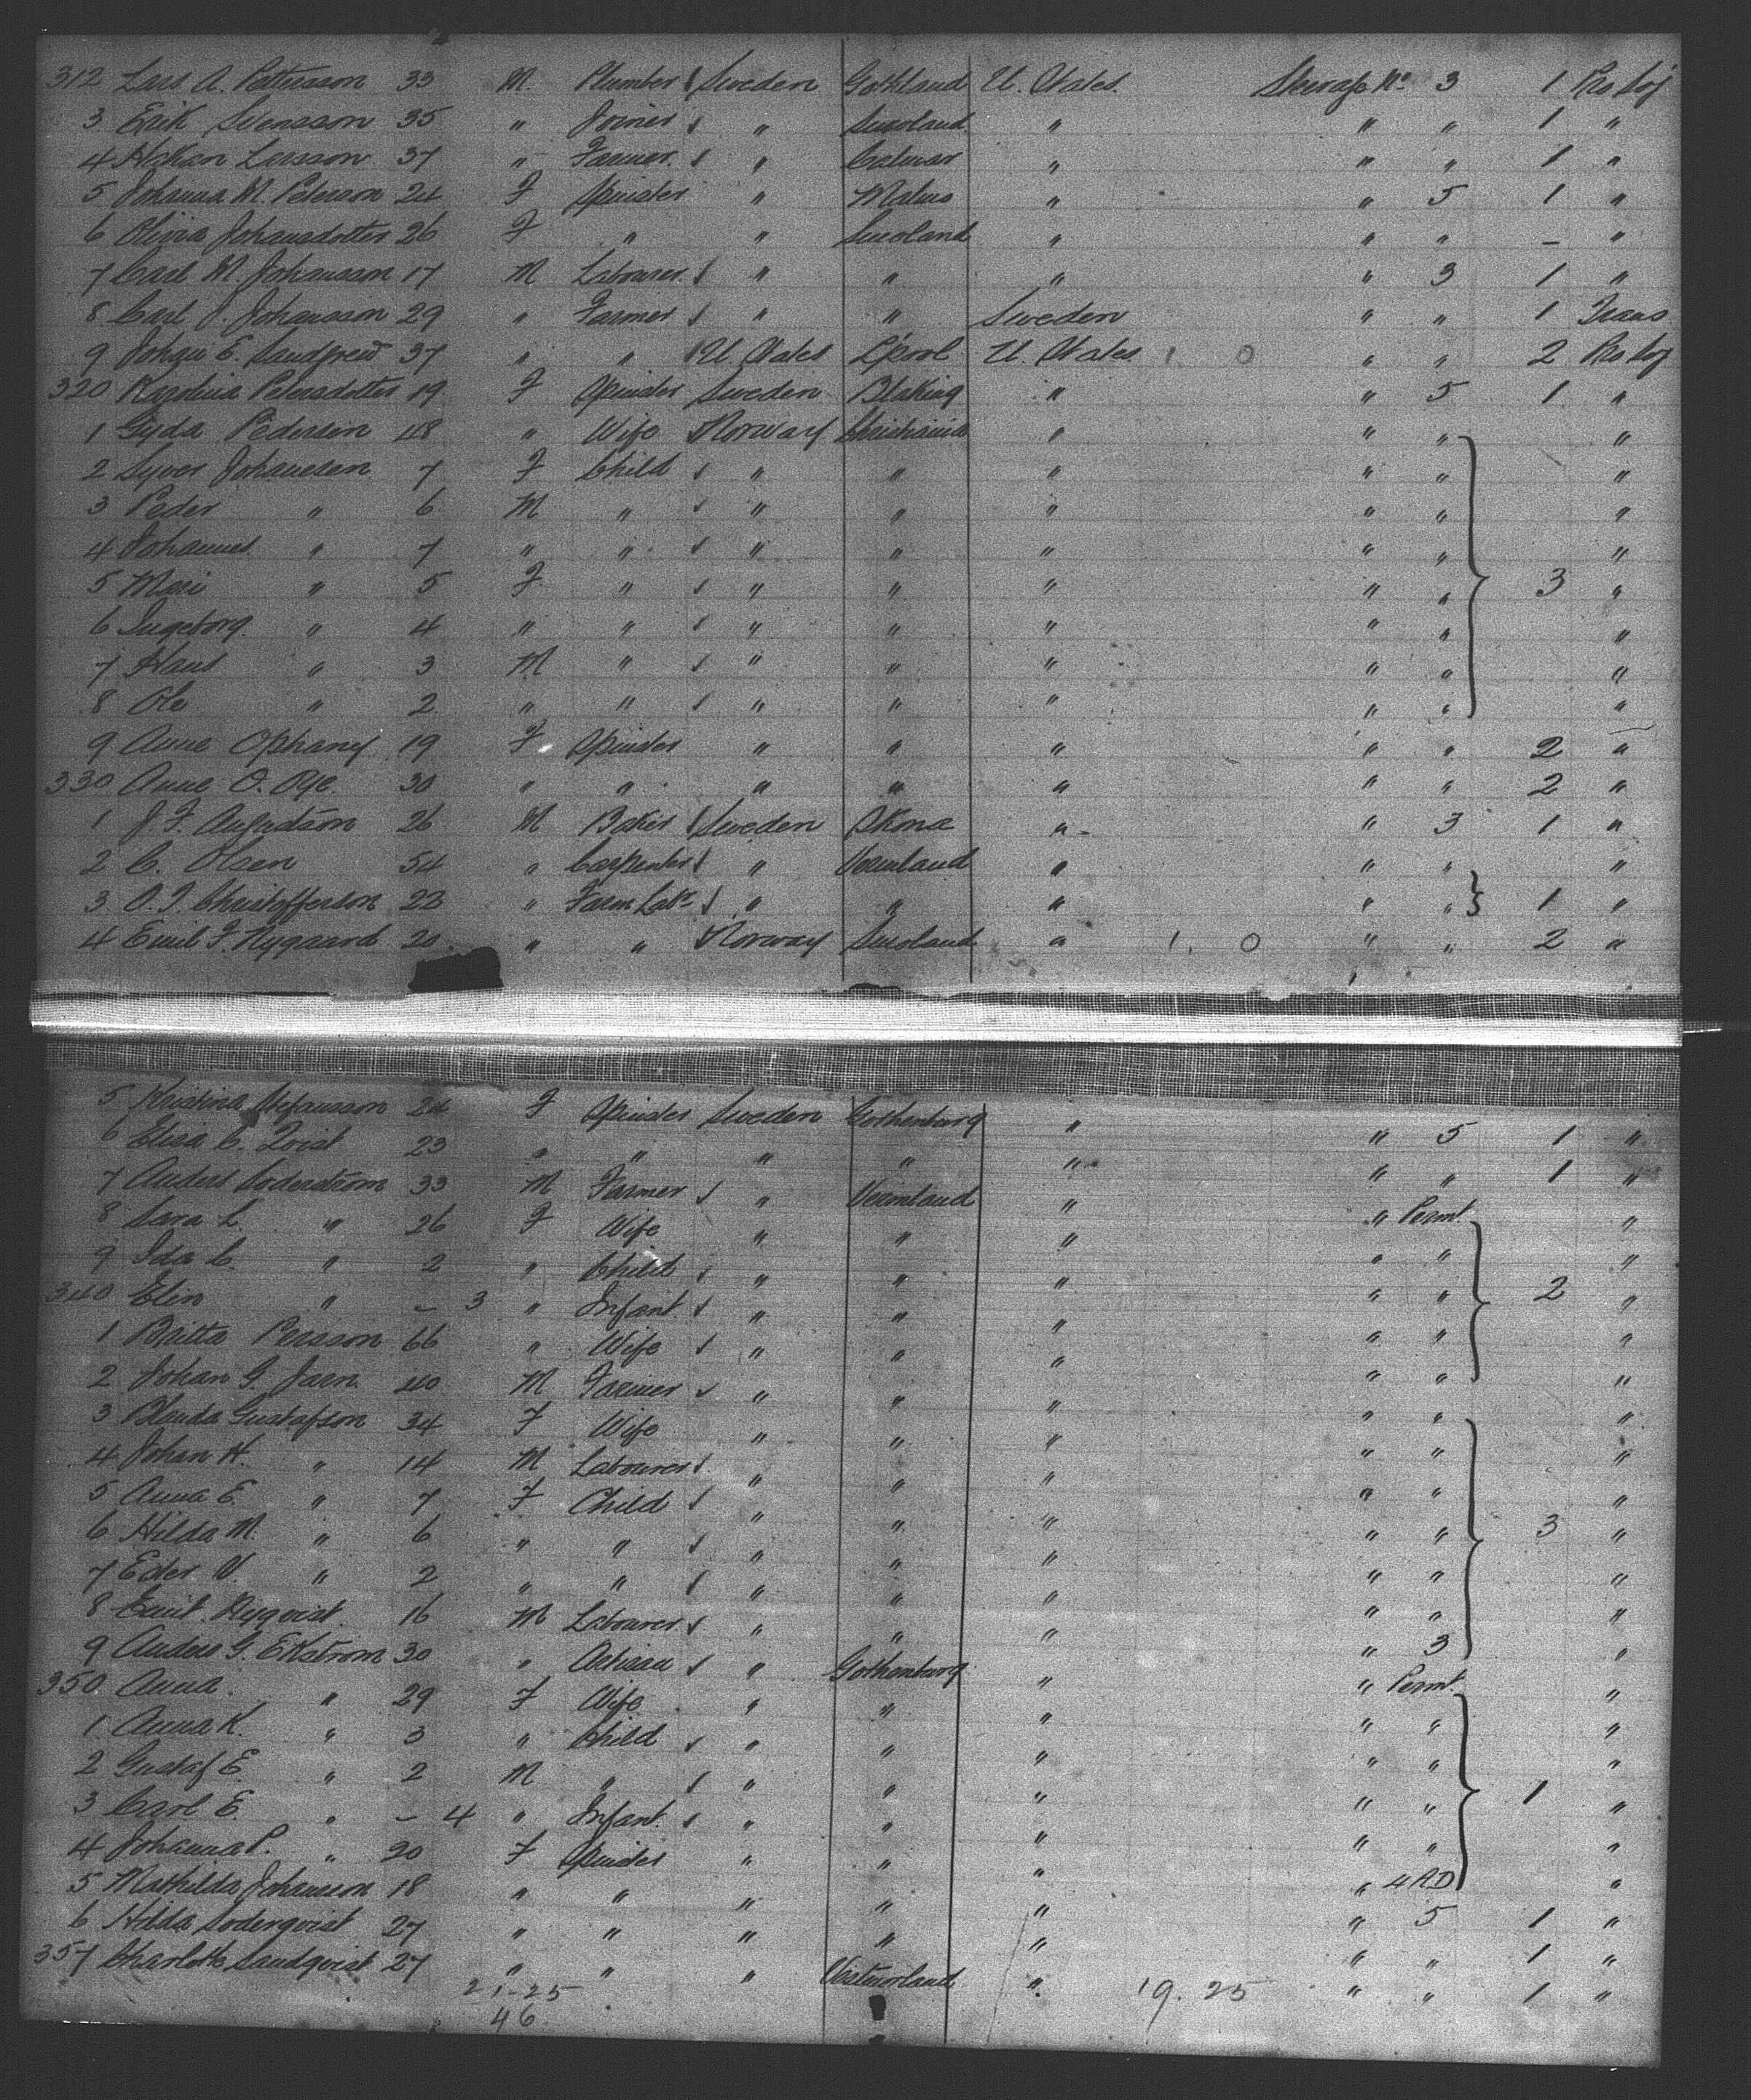 312 Lars A. Pettersson 33 M. Plumber Sweden Gothland U. States. Steerage No 3 1 Pro Soj
3 Erik Svensson 35 " Joiner " Smoland " " " 1 "
4 Hakan Larsson 37 " Farmer " Calmar " " " 1 "
5 Johanna M. Peterson 24 F Spinster " Malmo " " 5 1 "
6 Olivia Johansdotter 26 F " " Smoland " " " - "
7 Carl M. Johansson 17 M Labourer " " " " 3 1 "
8 Carl J. Johansson 29 " Farmer " " Sweden " " 1 Trans
9 Johan E. 37 " " U. States L'pool U. States 1 0 " " 2 Pro Soj
320 Karolina Petersdotter 19 F Spinster Sweden Bleking " " 5 1 "
1 Gyda Pedersen 48 " Wife Norway Christiania " " " "
2 Syver Johannesen 7 F Child " " " " " "
3 Peder " 6 M " " " " " " "
4 Johannes " 7 " " " " " " " "
5 Mari " 5 F " " " " " " 3 "
6 Ingeborg " 4 " " " " " " " "
7 Hans " 3 M " " " " " " "
8 Ole " 2 " " " " " " " "
9 Anne 19 F Spinster " " " " " 2 "
330 Anne O. Rye. 30 " " " " " " " 2 "
1 J. F. 26 M Baker Sweden Skona " " 3 1 "
2 C. Olsen 54 " Carpenter " Vermland " " " "
3 O. J. Christofferson 22 " Farm Labr " " " " " 1 "
4 Emil F. Nygaard 20 " " Norway Smoland " 1. 0 " " 2 "
5 Kristina 24 F Spinster Sweden Gothenburg " " 5 1 "
6 Elisa C. Qvist 23 " " " " " " " 1 "
7 Anders Soderstrom 33 M Farmer " Vermland " " Permt. "
8 Sara L. " 26 F Wife " " " " " "
9 Ida C. " 2 " Child " " " " " 2 "
340 Elin " - 3 " Infant " " " " " "
1 Britta Persson 66 " Wife " " " " " "
2 Johan G. Jarn. 40 M Farmer " " " " " "
3 Blanda Gustafson 34 F Wife " " " " " "
4 Johan H. " 14 M Labourer " " " " " "
5 Anna E. " 7 F Child " " " " " 3 "
6 Hilda M. " 6 " " " " " " " "
7 Ester V. " 2 " " " " " " " "
8 Emil 16 M Labourer " " " " 3 "
9 Anders G. Ekstrom 30 " Artisan " Gothenburg " " Permt. "
350 Anna. " 29 F Wife " " " " " "
1. Anna K. " 3 " Child " " " " " "
2 Gustaf E. " 2 M " " " " " " 1 "
3 Carl E. " - 4 " Infant. " " " " " "
4 Johanna P. " 20 F Spinster " " " " 4 AD "
5 Mathilda Johanson 18 " " " " " " 5 1 "
6 Hilda Soderqvist 27 " " " " " " " 1 "
357 Charlotte Sandqvist 27 " " " Vestmorland " " " 1 "
21-25 19. 25
46